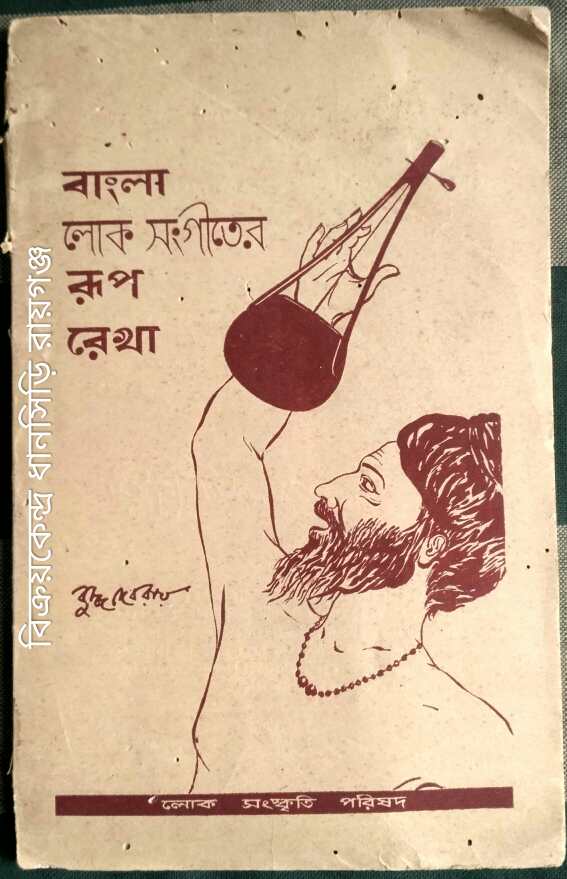 বাংলা
লোক সংগীতের
রূপ
রেখা
বিক্রয়কেন্দ্র ধানসিড়ি রায়গঞ্জ
বুদ্ধদেব রায়
লোক সংস্কৃতি পরিষদ